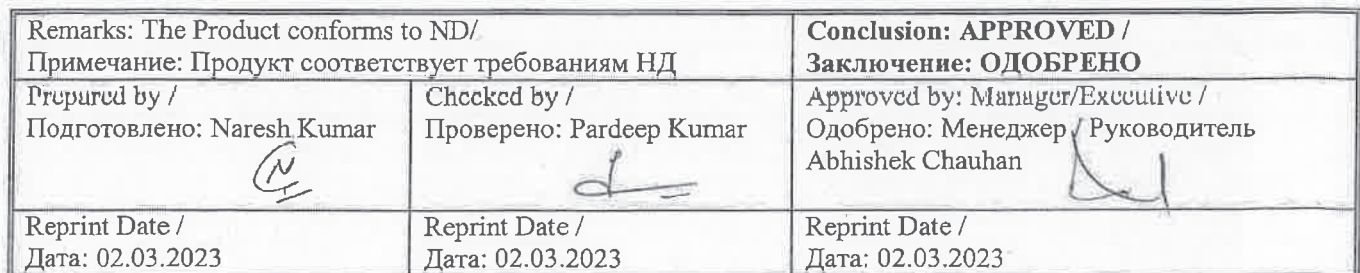 Remarks: The Product conforms to ND/
Примечание: Продукт соответствует требованиям НД
Conclusion: APPROVED /
Заключение: ОДОБРЕНО
Prepared by /
Подготовлено: Naresh Kumar
Checked by /
Проверено: Pardeep Kumar
Approved by: Manager/Executive /
Одобрено: Менеджер / Руководитель
Abhishek Chauhan
Reprint Date /
Дата: 02.03.2023
Reprint Date /
Дата: 02.03.2023
Reprint Date /
Дата: 02.03.2023